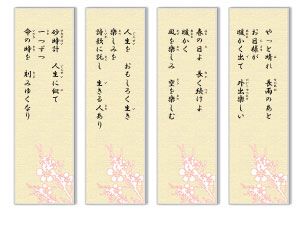 やっと晴れ　長雨のあと
お日様が
暖かく出て　外出楽しい
春の日よ　長く続けよ
暖かく
風を楽しみ　空を楽しむ
人生を　おもしろく生き
楽しみを
詩歌に託し　生きる人あり
砂時計　人生に似て
一つづつ
命の時を　刻みゆくなり